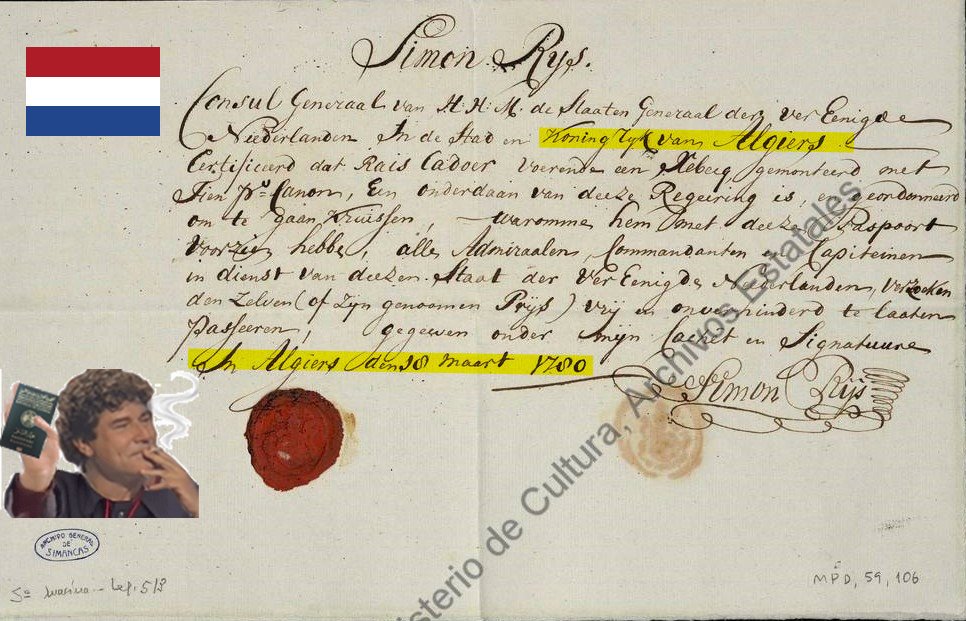 Simon Rijs.
Consul Generaal van H: H: M: de Staaten Generaal der ver Eenigde
Niederlanden In de Stad en Koninglijk van Algiers
Certificeerd dat Rais Cadoer voerende een Xebecq gemonteerd met
Tien ps Canon, Een onderdaan van deeze Regeiring is, en geordonneerd
om te gaan Kruissen, waromme hem met deeze Paspoort
voorzien hebbe, alle Admiraalen, Commandanten en Capiteinen
in dienst van deezen Staat der Ver Eenigde Niederlanden, verzoeken
den Zelven (of Zyn genoomen Prijs) vrij en onverhinderd te laaten
Passeeren, gegeeven onder mijn Cachet en Signatuure
In Algiers den 18 maart 1780
Simon Rijs
ARCHIVO GENERAL
DE
SIMANCAS
MPD, 59, 106
Ministerio de Cultura, Archivos Estatales